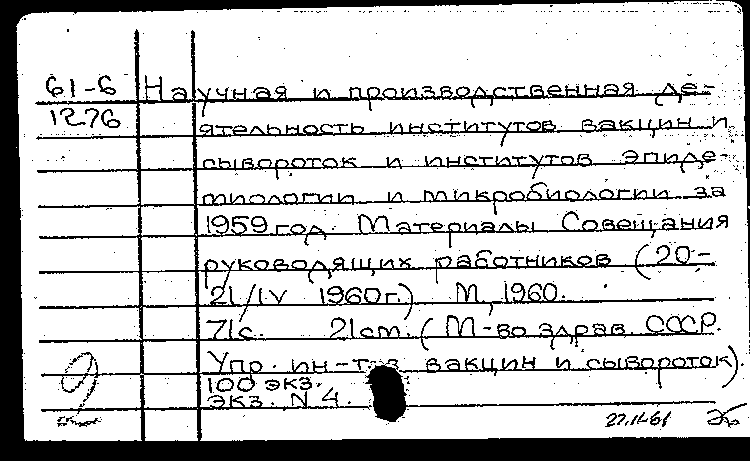 61-6 Научная и производственная де-
1276 ятельность институтов вакцин и
сывороток и институтов эпиде-
миологии и микробиологии за
1959 год. Материалы Совещания
руководящих работников (20-
21/IV 1960г.) М, 1960.
71с. 21cm. (М-во здрав. СССР.
Упр. ин-тов вакцин и сывороток).
100 экз.
экз. N 4.
2